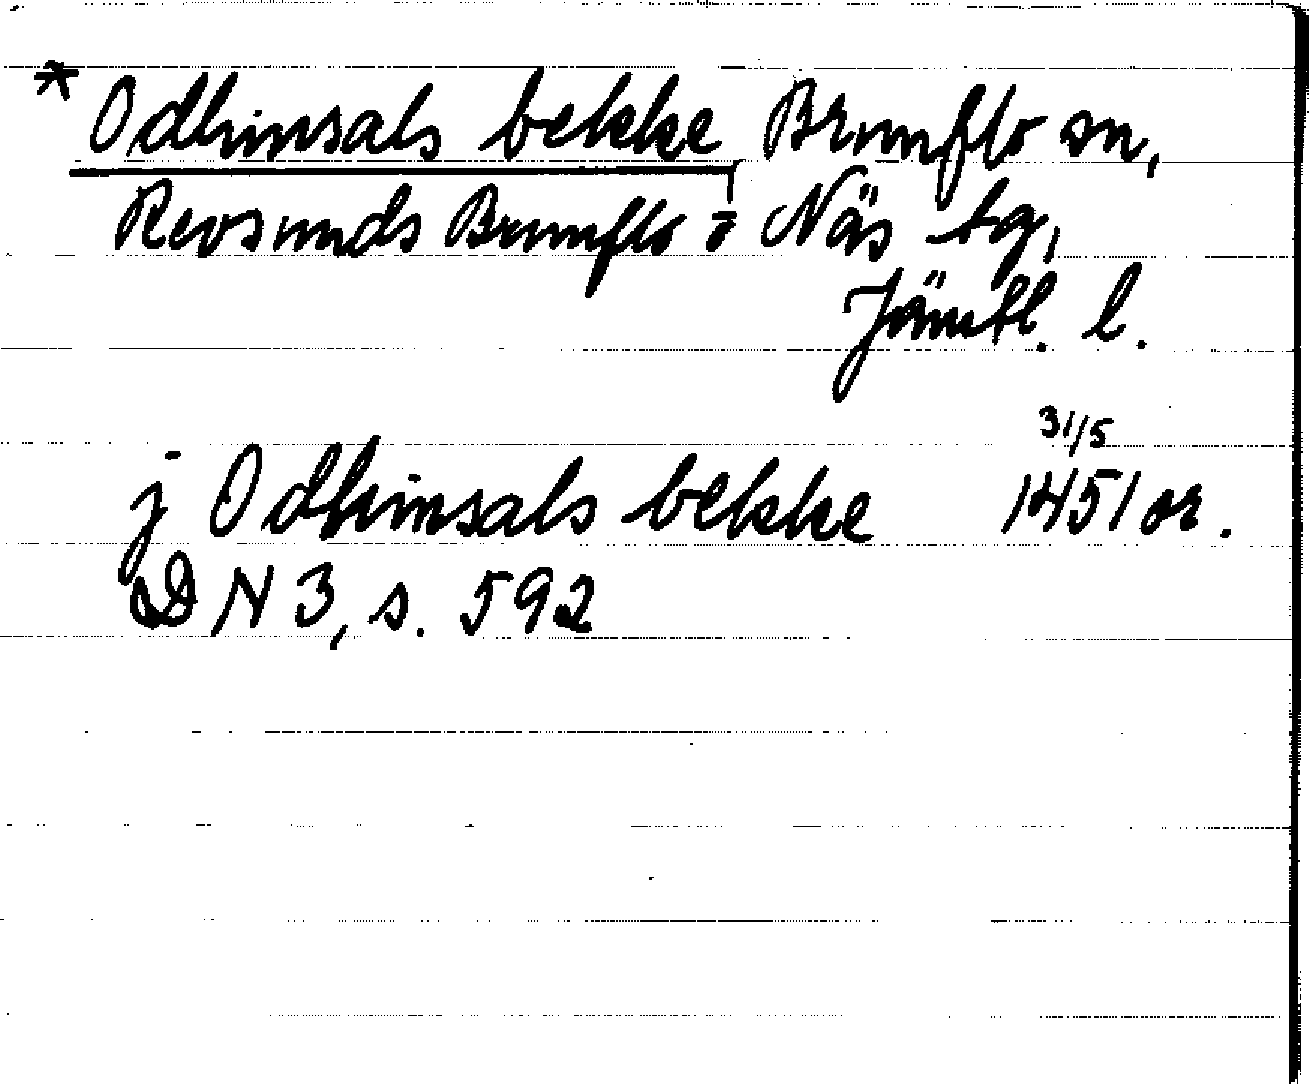 * Odhinsals bekke, Brunflo sn,
Revsunds Brunflo o Näs tg,
Jämtl. l.
31/5
j Odhinsals bekke 1451 or.
DN 3, s. 592